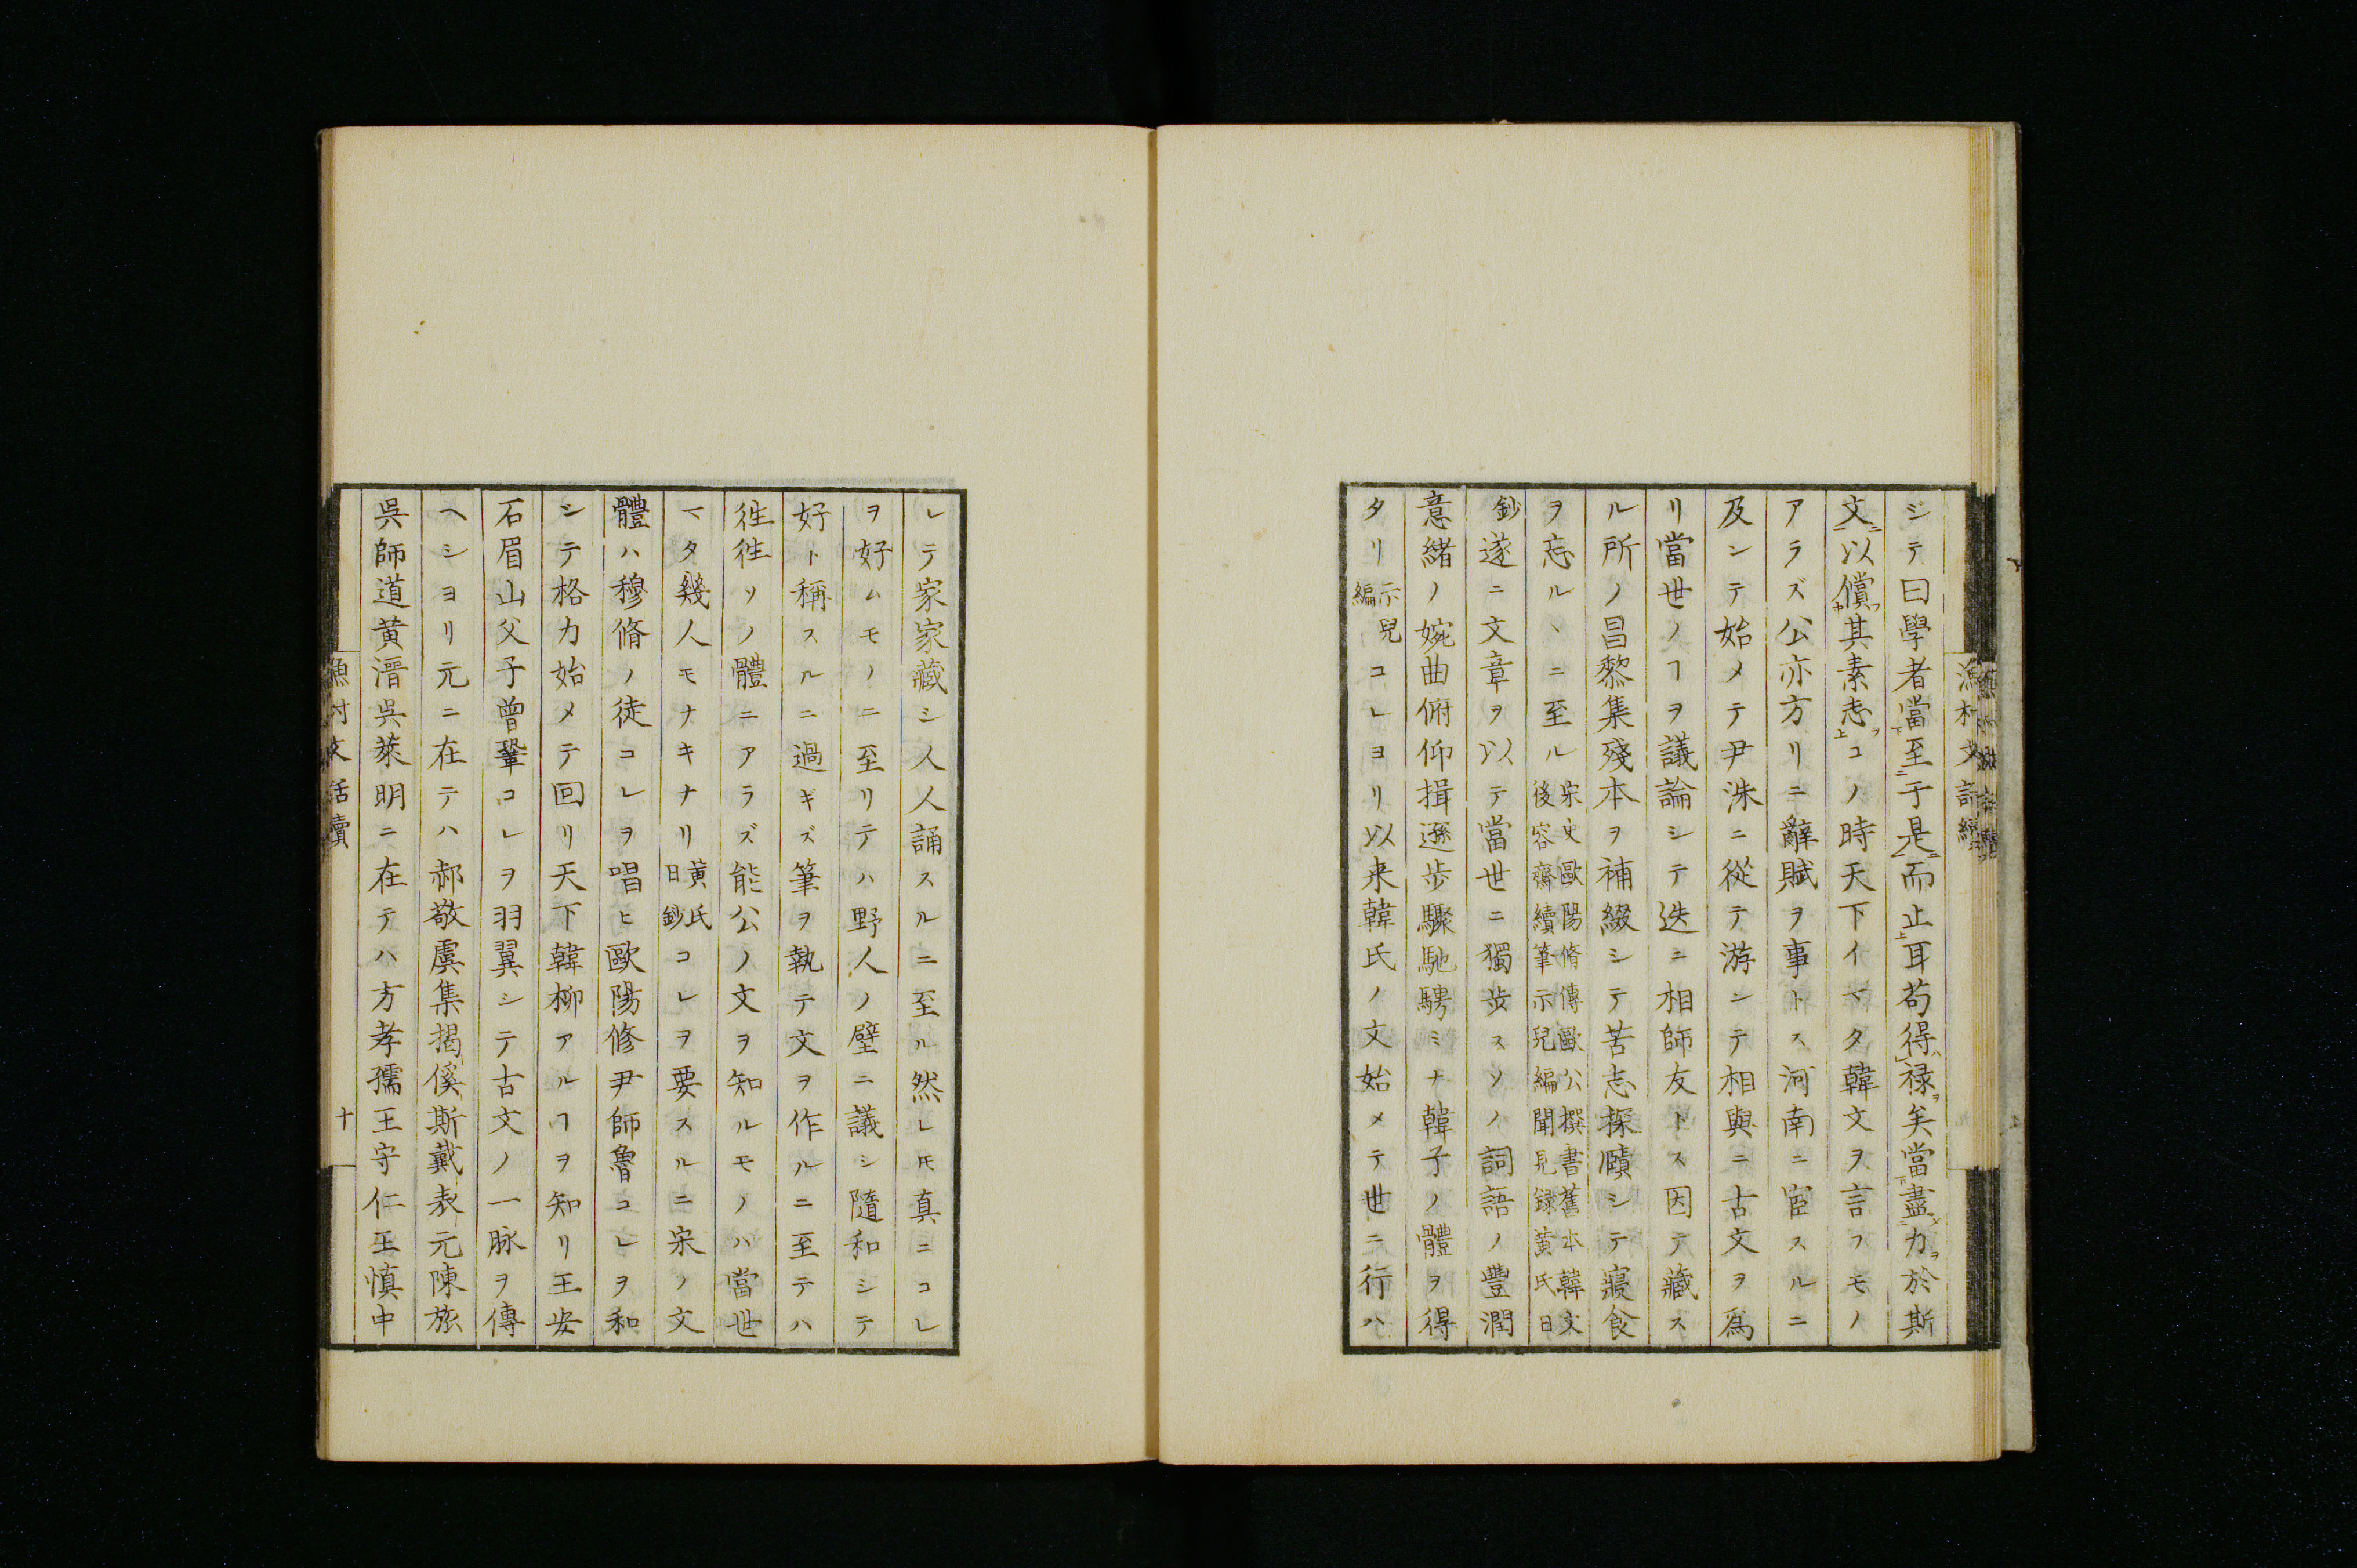 シテ曰學者當至于是而止耳苟得禄矣當盡力於斯
文以償其素志コノ時天下イマタ韓文ヲ言フモノ
アラズ公亦方リニ辭賦ヲ事トス河南ニ宦スルニ
及ンテ始メテ尹洙ニ從テ游ンテ相與ニ古文ヲ爲
リ當世ノヿヲ議論シテ迭ニ相師友トス因テ藏ス
ル所ノ昌黎集殘本ヲ補綴シテ苦志探賾シテ寢食
ヲ忘ルヽニ至ル宋史歐陽脩傳歐公撰書舊本韓文後容齋續筆示兒編聞見録黄氏日
鈔遂ニ文章ヲ以テ當世ニ獨歩スソノ詞語ノ豐潤
意緒ノ婉曲俯仰揖遜歩驟馳騁ミナ韓子ノ體ヲ得
タリ示兒編コレヨリ以来韓氏ノ文始メテ世ニ行ハ
レテ家家藏シ人人誦スルニ至ル然レ𪜈真ニコレ
ヲ好ムモノニ至リテハ野人ノ壁ニ議シ隨和シテ
好ト稱スルニ過ギズ筆ヲ執テ文ヲ作ルニ至テハ
徃徃ソノ體ニアラズ能公ノ文ヲ知ルモノハ當世
マタ幾人モナキナリ黄氏日鈔コレヲ要スルニ宋ノ文
體ハ穆脩ノ徒コレヲ唱ヒ歐陽修尹師魯コレヲ和
シテ格力始メテ回リ天下韓柳アルヿヲ知リ王安
石眉山父子曾鞏コレヲ羽翼シテ古文ノ一脉ヲ傳
ヘシヨリ元ニ在テハ郝敬虞集揭傒斯戴表元陳旅
吳師道黄溍吳萊明ニ在テハ方孝孺王守仁王慎中
漁村文話續
十